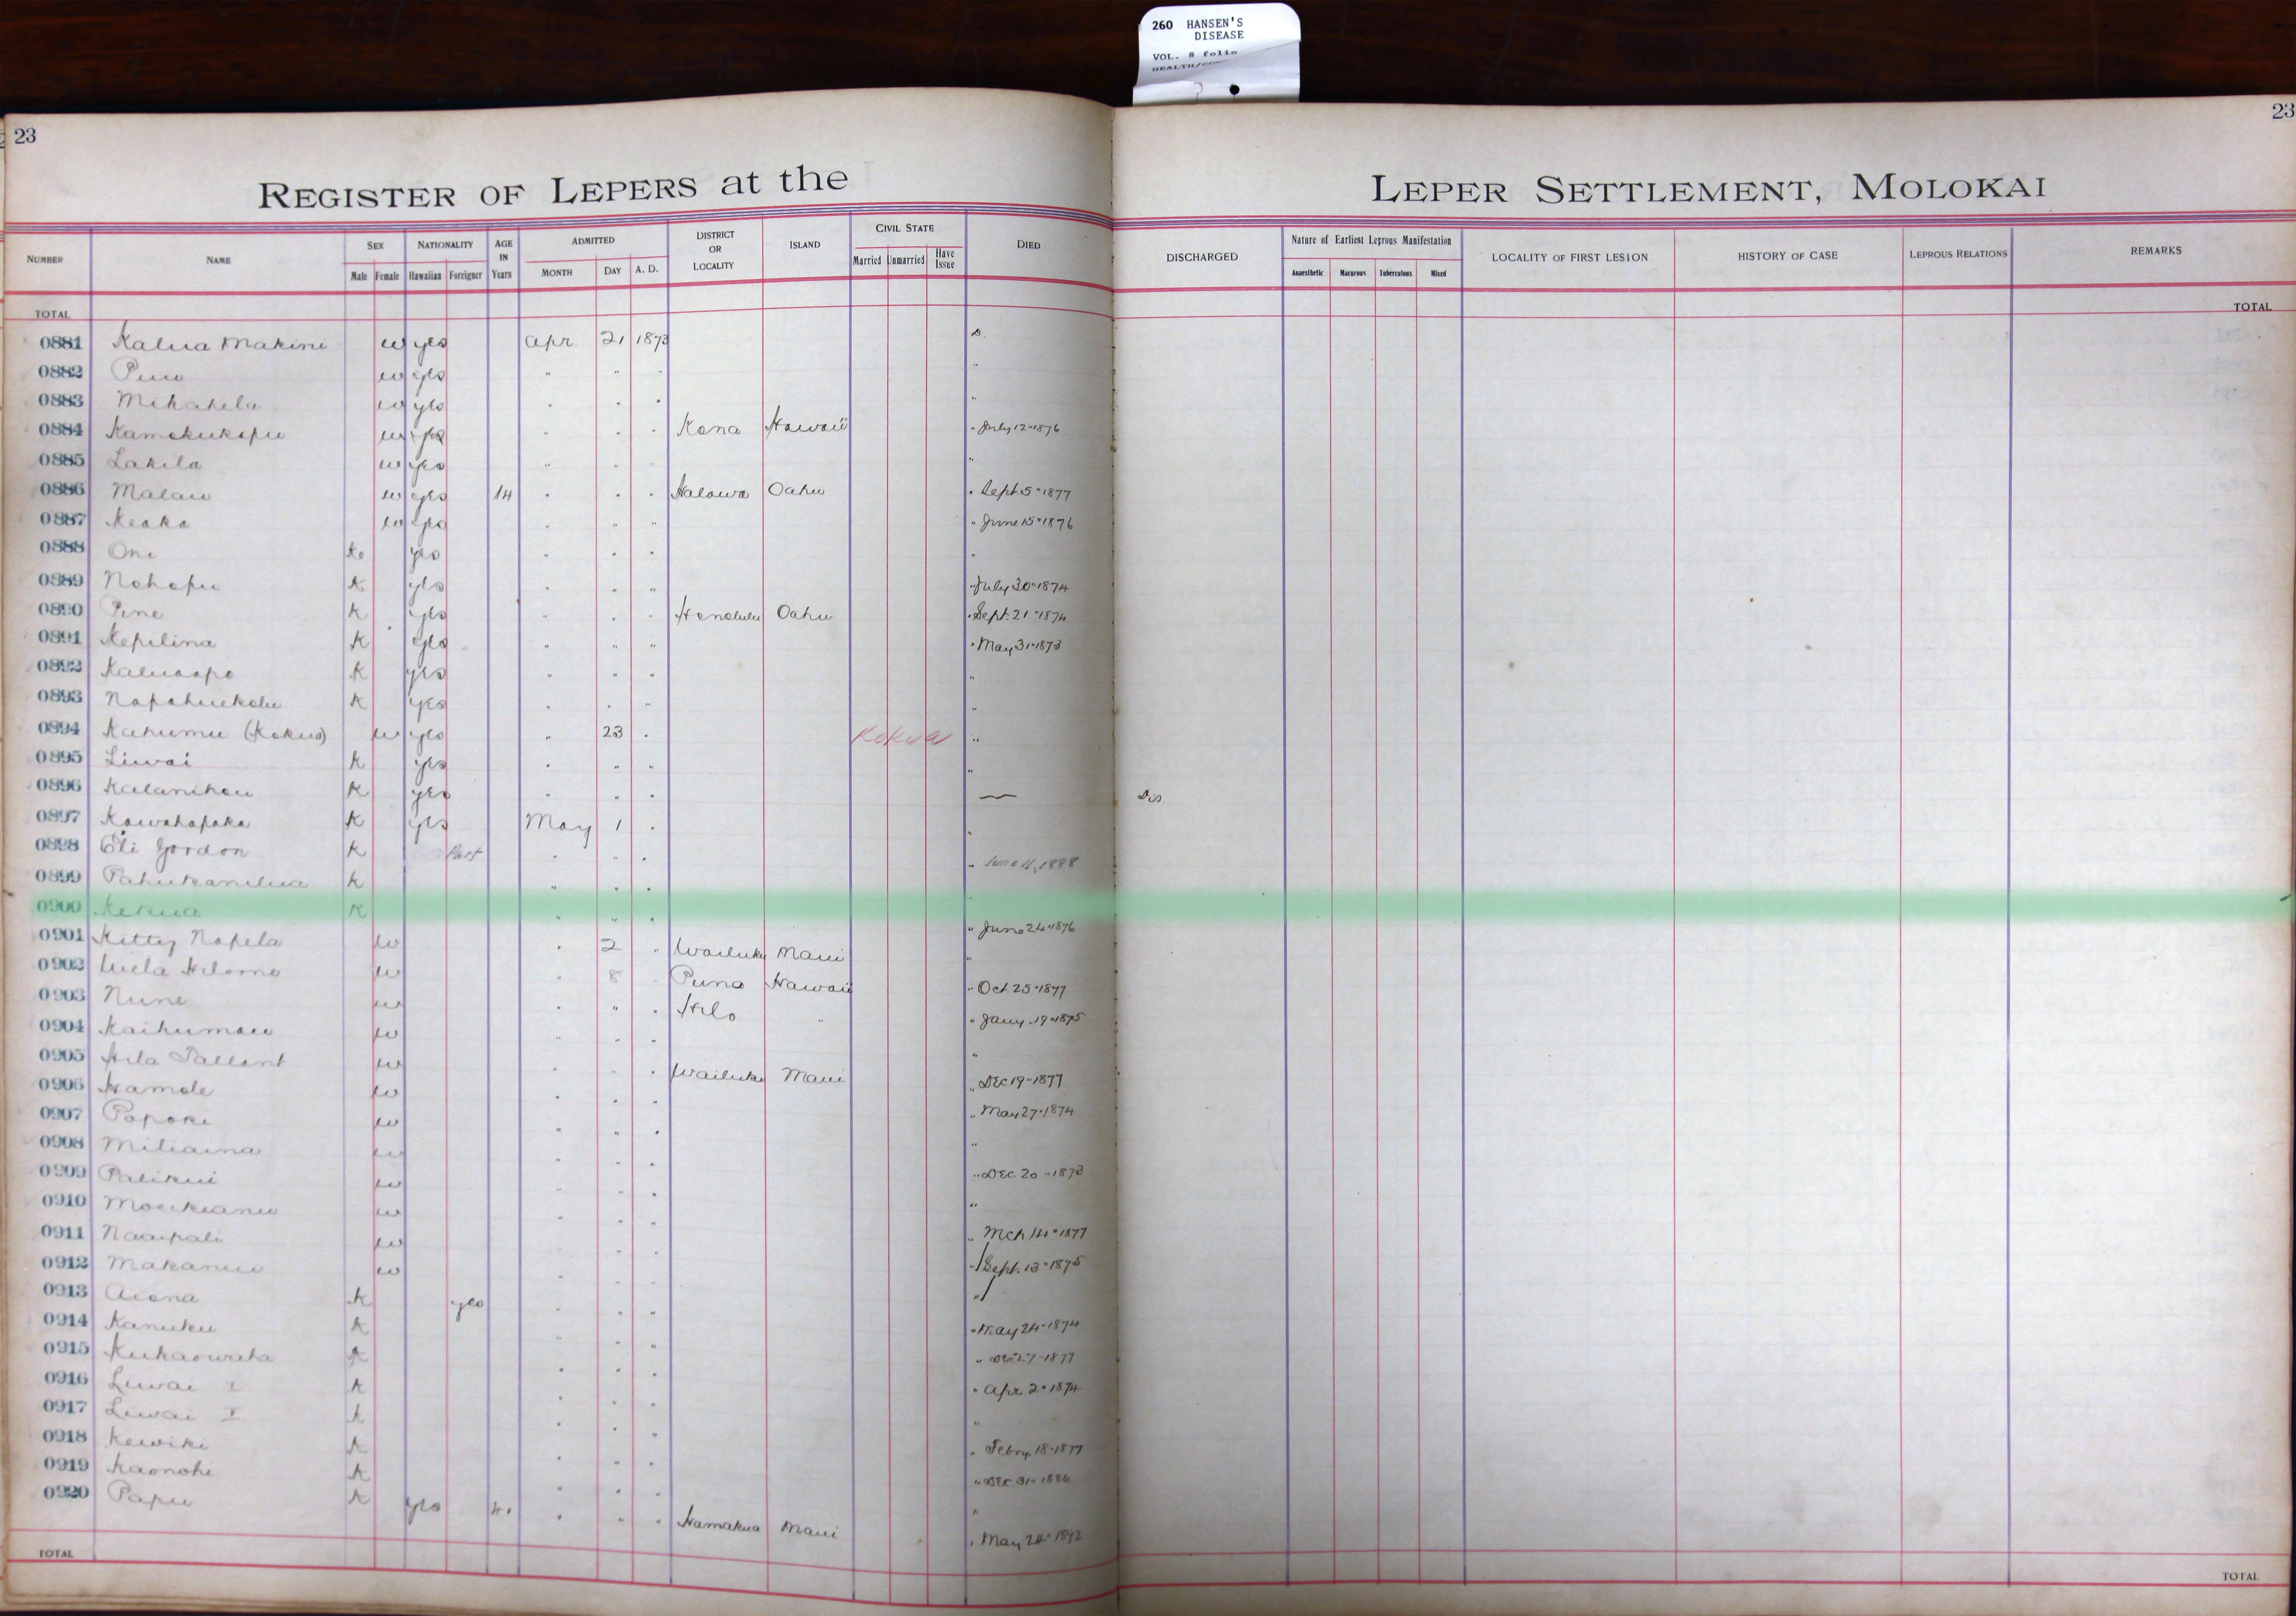 260 HANSEN'S
DISEASE
VOL. 8 folio
23
23
REGISTER OF LEPERS at the LEPER SETTLEMENT, MOLOKAI
NUMBER NAME SEX Male Female NATIONALITY Hawaiian Foreigner AGE IN Years ADMITTED MONTH DAY A. D. DISTRICT OR LOCALITY ISLAND CIVIL STATE Married Unmarried Have Issue DIED DISCHARGED Nature of Earliest Leprous Manifestation Anaesthetic Macurous Tuberculous Mixed LOCALITY OF FIRST LESION HISTORY OF CASE LEPROUS RELATIONS REMARKS
TOTAL TOTAL
0881 Kalua Makini w yes Apr 21 1873 D.
0882 w yes " " " "
0883 Mikahela w yes " " " "
0884 Kamokukapu w yes " " " Kona Hawaii " July 12 " 1876
0885 Lakila w yes " " " "
0886 Malau w yes 14 " " " Halawa Oahu " Sept. 5 " 1877
0887 Keaka w yes " " " " June 15 " 1876
0888 Oni K yes " " " "
0889 Nohopu K yes " " " " July 30 " 1874
0890 Pine K yes " " " Honolulu Oahu " Sept. 21 " 1874
0891 Kepilina K yes " " " " May 31 " 1873
0892 K yes " " " "
0893 Napahuekolu K yes " " " "
0894 Kahumu (Kokua) w yes " 23 " Kokua "
0895 Liwai K yes " " " "
0896 Kalanihou K yes " " " — Dis
0897 Kawahapaka K yes May 1 " "
0898 Eli Gordon K Part " " " " June 11, 1888
0899 Pahukanilua K " " " "
0900 Kekua K " " " " June 24 " 1876
0901 Kitty Napela w " 2 " Wailuku Maui "
0902 w " 8 Puna Hawaii " Oct. 25 " 1877
0903 Nune w " " " Hilo " " Jany. 19 " 1875
0904 Kaihumau w " " " "
0905 Hila Tallant w " " " Wailuku Maui " Dec 19 " 1877
0906 Hamole w " " " " May 27 " 1874
0907 Popoki w " " " "
0908 Miliaina w " " " " Dec. 20 " 1873
0909 Palikui w " " " "
0910 w " " " " Mch 14 " 1877
0911 Naaipali w " " " " Sept. 13 " 1875
0912 Makanui w " " " "
0913 Aiona K yes " " " " May 24 " 1874
0914 Kanuku K " " " " Dec 27 " 1877
0915 Kukaowaha K " " " " Apr. 2 " 1874
0916 Liwai I K " " " "
0917 Liwai K " " " " Febry. 18 " 1877
0918 Kewiki K " " " " Dec 31 " 1886
0919 Kaonohi K " " " "
0920 Papu K yes " " " Hamakua Maui " May 24 " 1892
TOTAL TOTAL